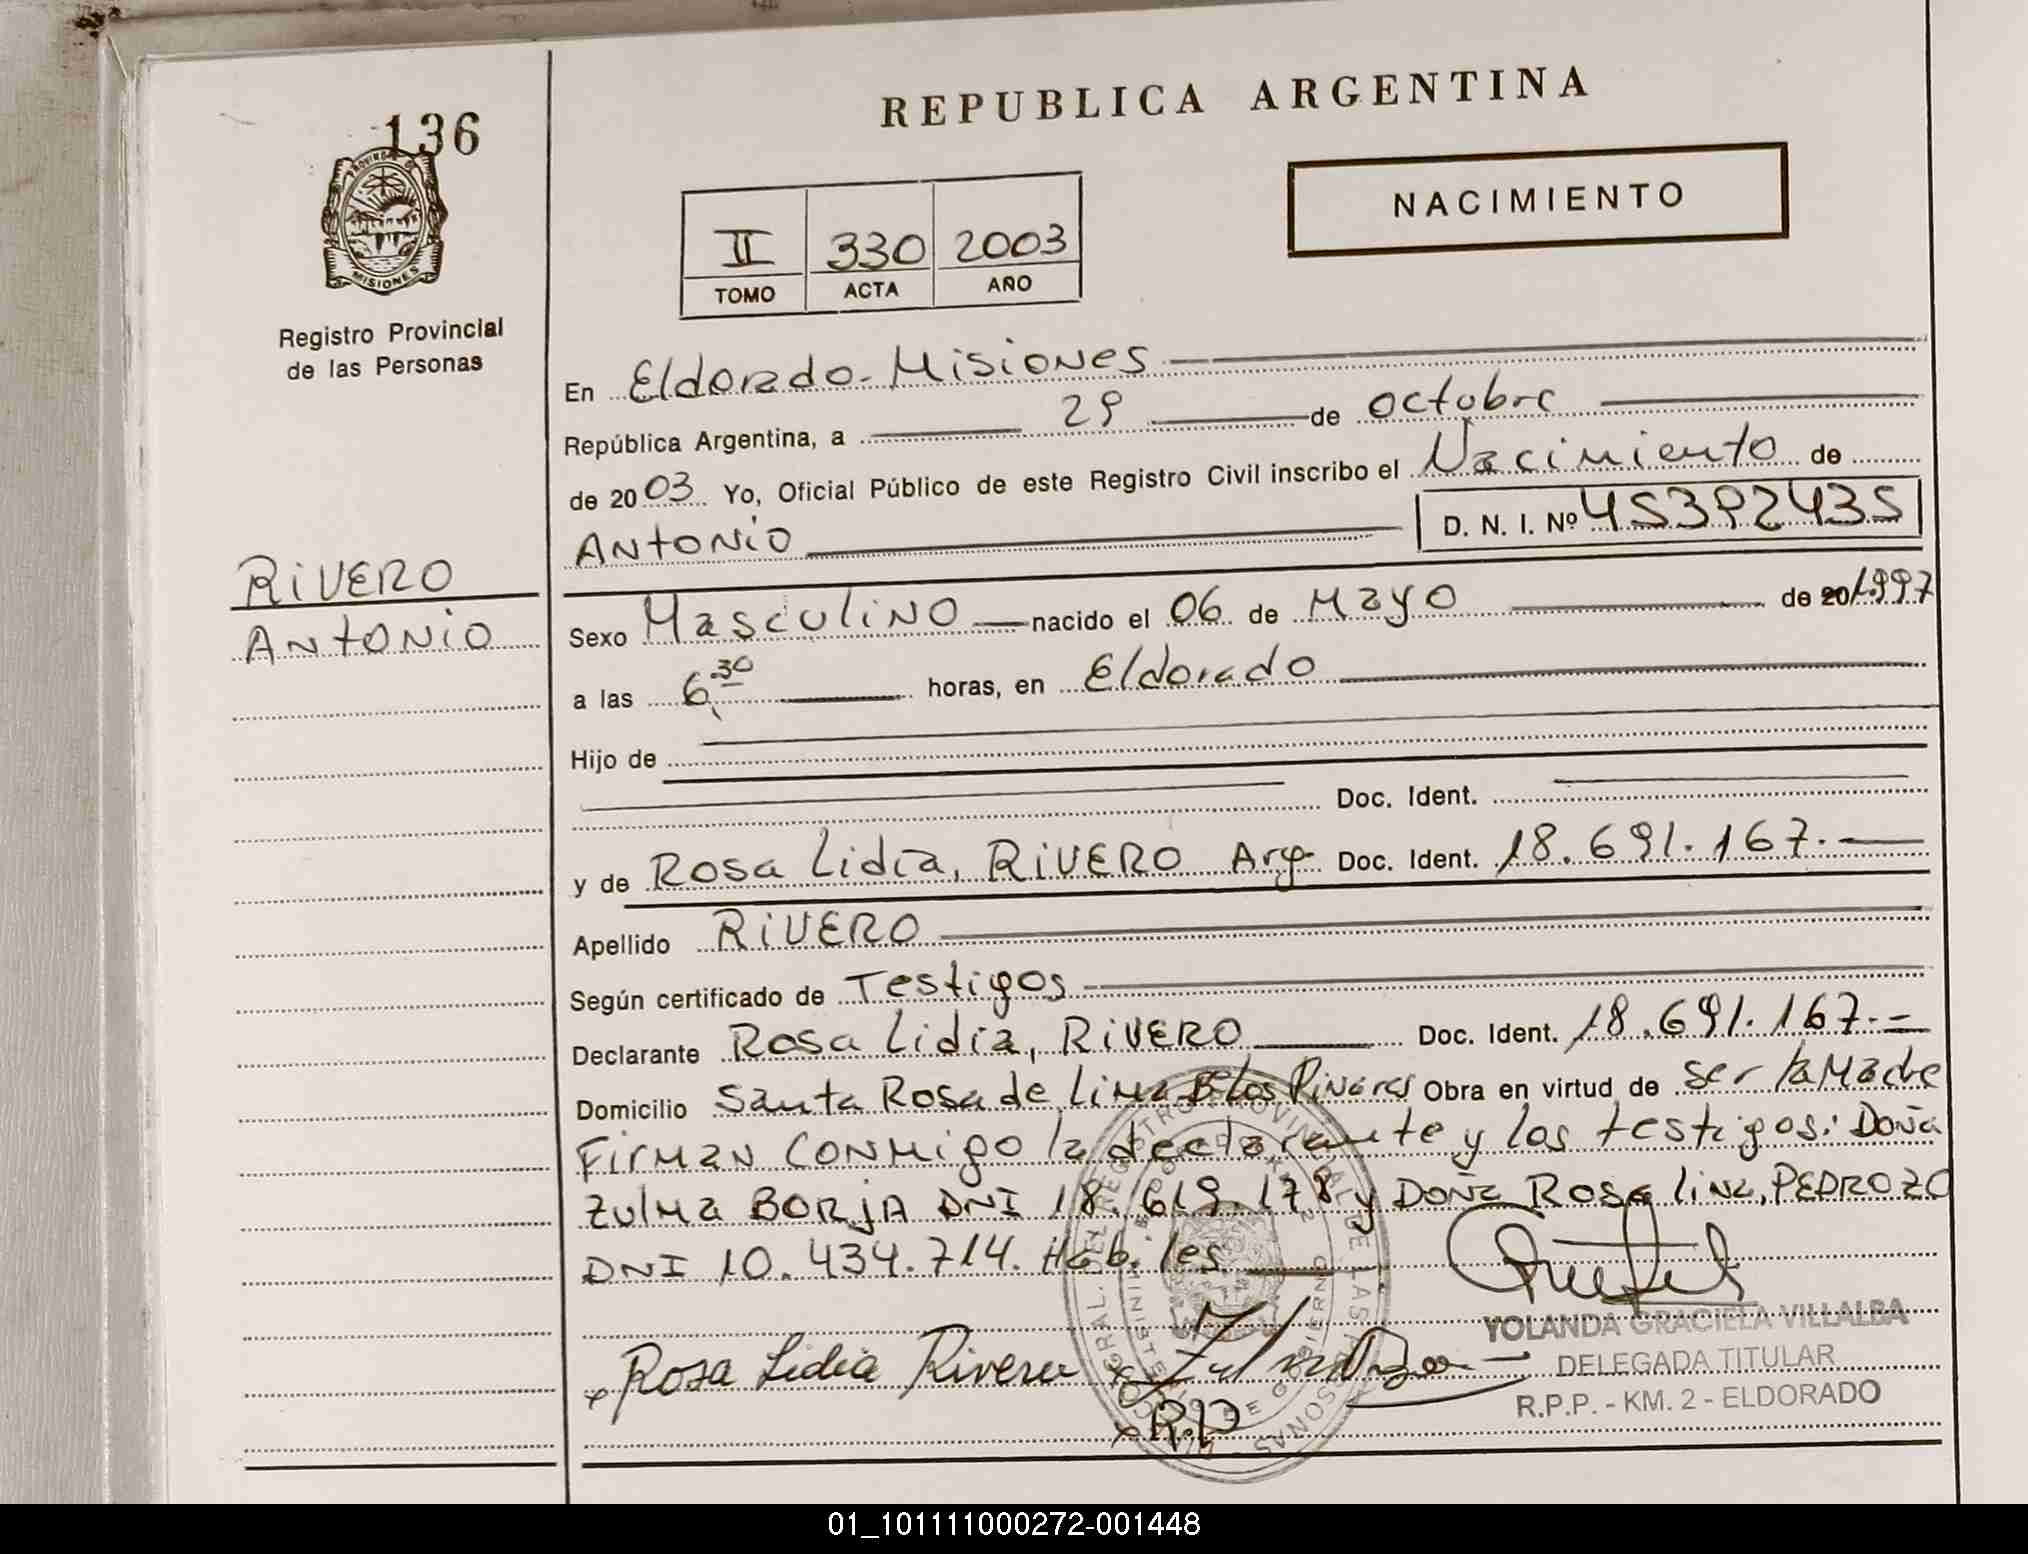 136
REPUBLICA ARGENTINA
NACIMIENTO
II 330 2003
TOMO ACTA AÑO
PROVINCIA DE MISIONES
Registro Provincial
de las Personas
RIVERO
ANTONIO
En Eldorado-Misiones
República Argentina, a 29 de octubre
de 2003 Yo, Oficial Público de este Registro Civil inscribo el Nacimiento de
ANTONIO D. N. I. Nº 45392435
Sexo Masculino nacido el 06 de Mayo de 20 1997
a las 6,30 horas, en Eldorado
Hijo de
Doc. Ident.
y de Rosa Lidia, RIVERO Arg Doc. Ident. 18.691.167.-
Apellido RIVERO
Según certificado de Testigos
Declarante Rosa Lidia, RIVERO Doc. Ident. 18.691.167.-
Domicilio Santa Rosa de Lima Bº Los Pinares Obra en virtud de ser la Madre
Firman conmigo la declarante y los testigos: Doña
Zulma BORJA DNI 18.619.178 y Doña Rosa lina, PEDROZO
DNI 10.434.714. Habiles
YOLANDA GRACIELA VILLALBA
DELEGADA TITULAR
R.P.P. - KM. 2 - ELDORADO
x Rosa Lidia Rivero
x R.P
01_101111000272-001448